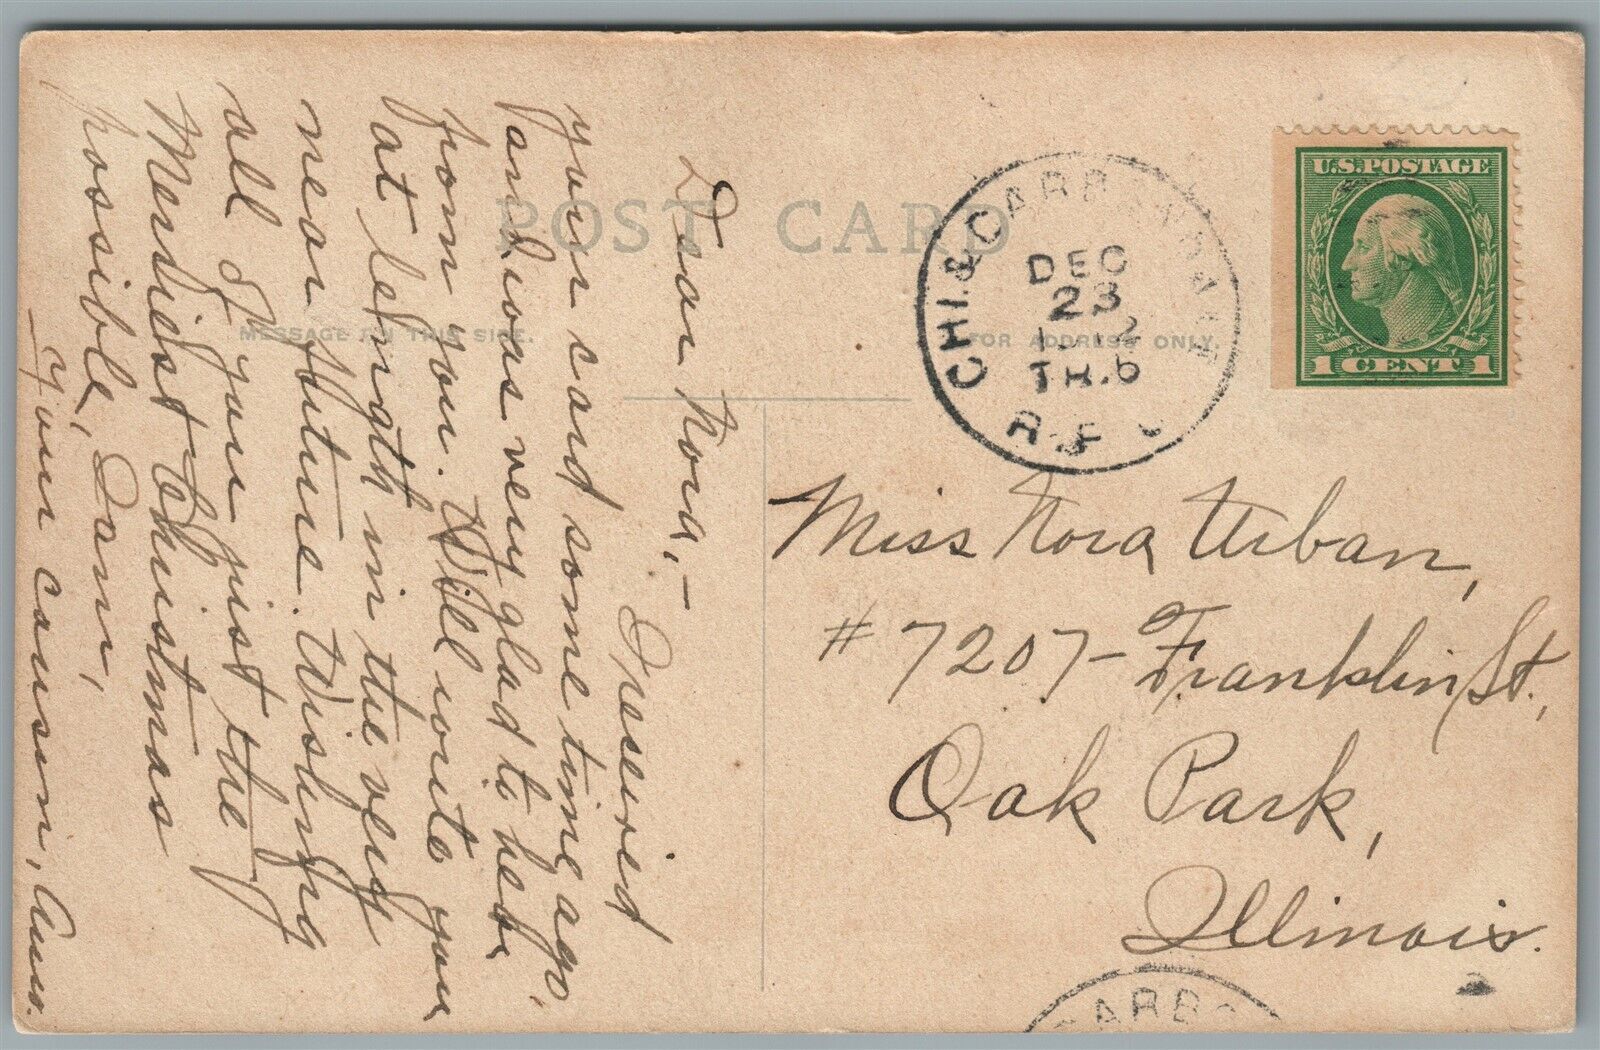 POST CARD
MESSAGE ON THIS SIDE.
FOR ADDRESS ONLY.
U.S. POSTAGE
1 CENT 1
CHI. & CARBONDALE
DEC
23
TR.6
R.P.O.
Miss Nora Urban,
# 7207 - Franklin St.,
Oak Park,
Illinois.
CARBO
Dear Nora, -
I received
your card some time ago,
and was very glad to hear
from you. Will write you
at length in the very
near future. Wishing
all of you just the
Merriest Christmas
possible, I am,
Your cousin,